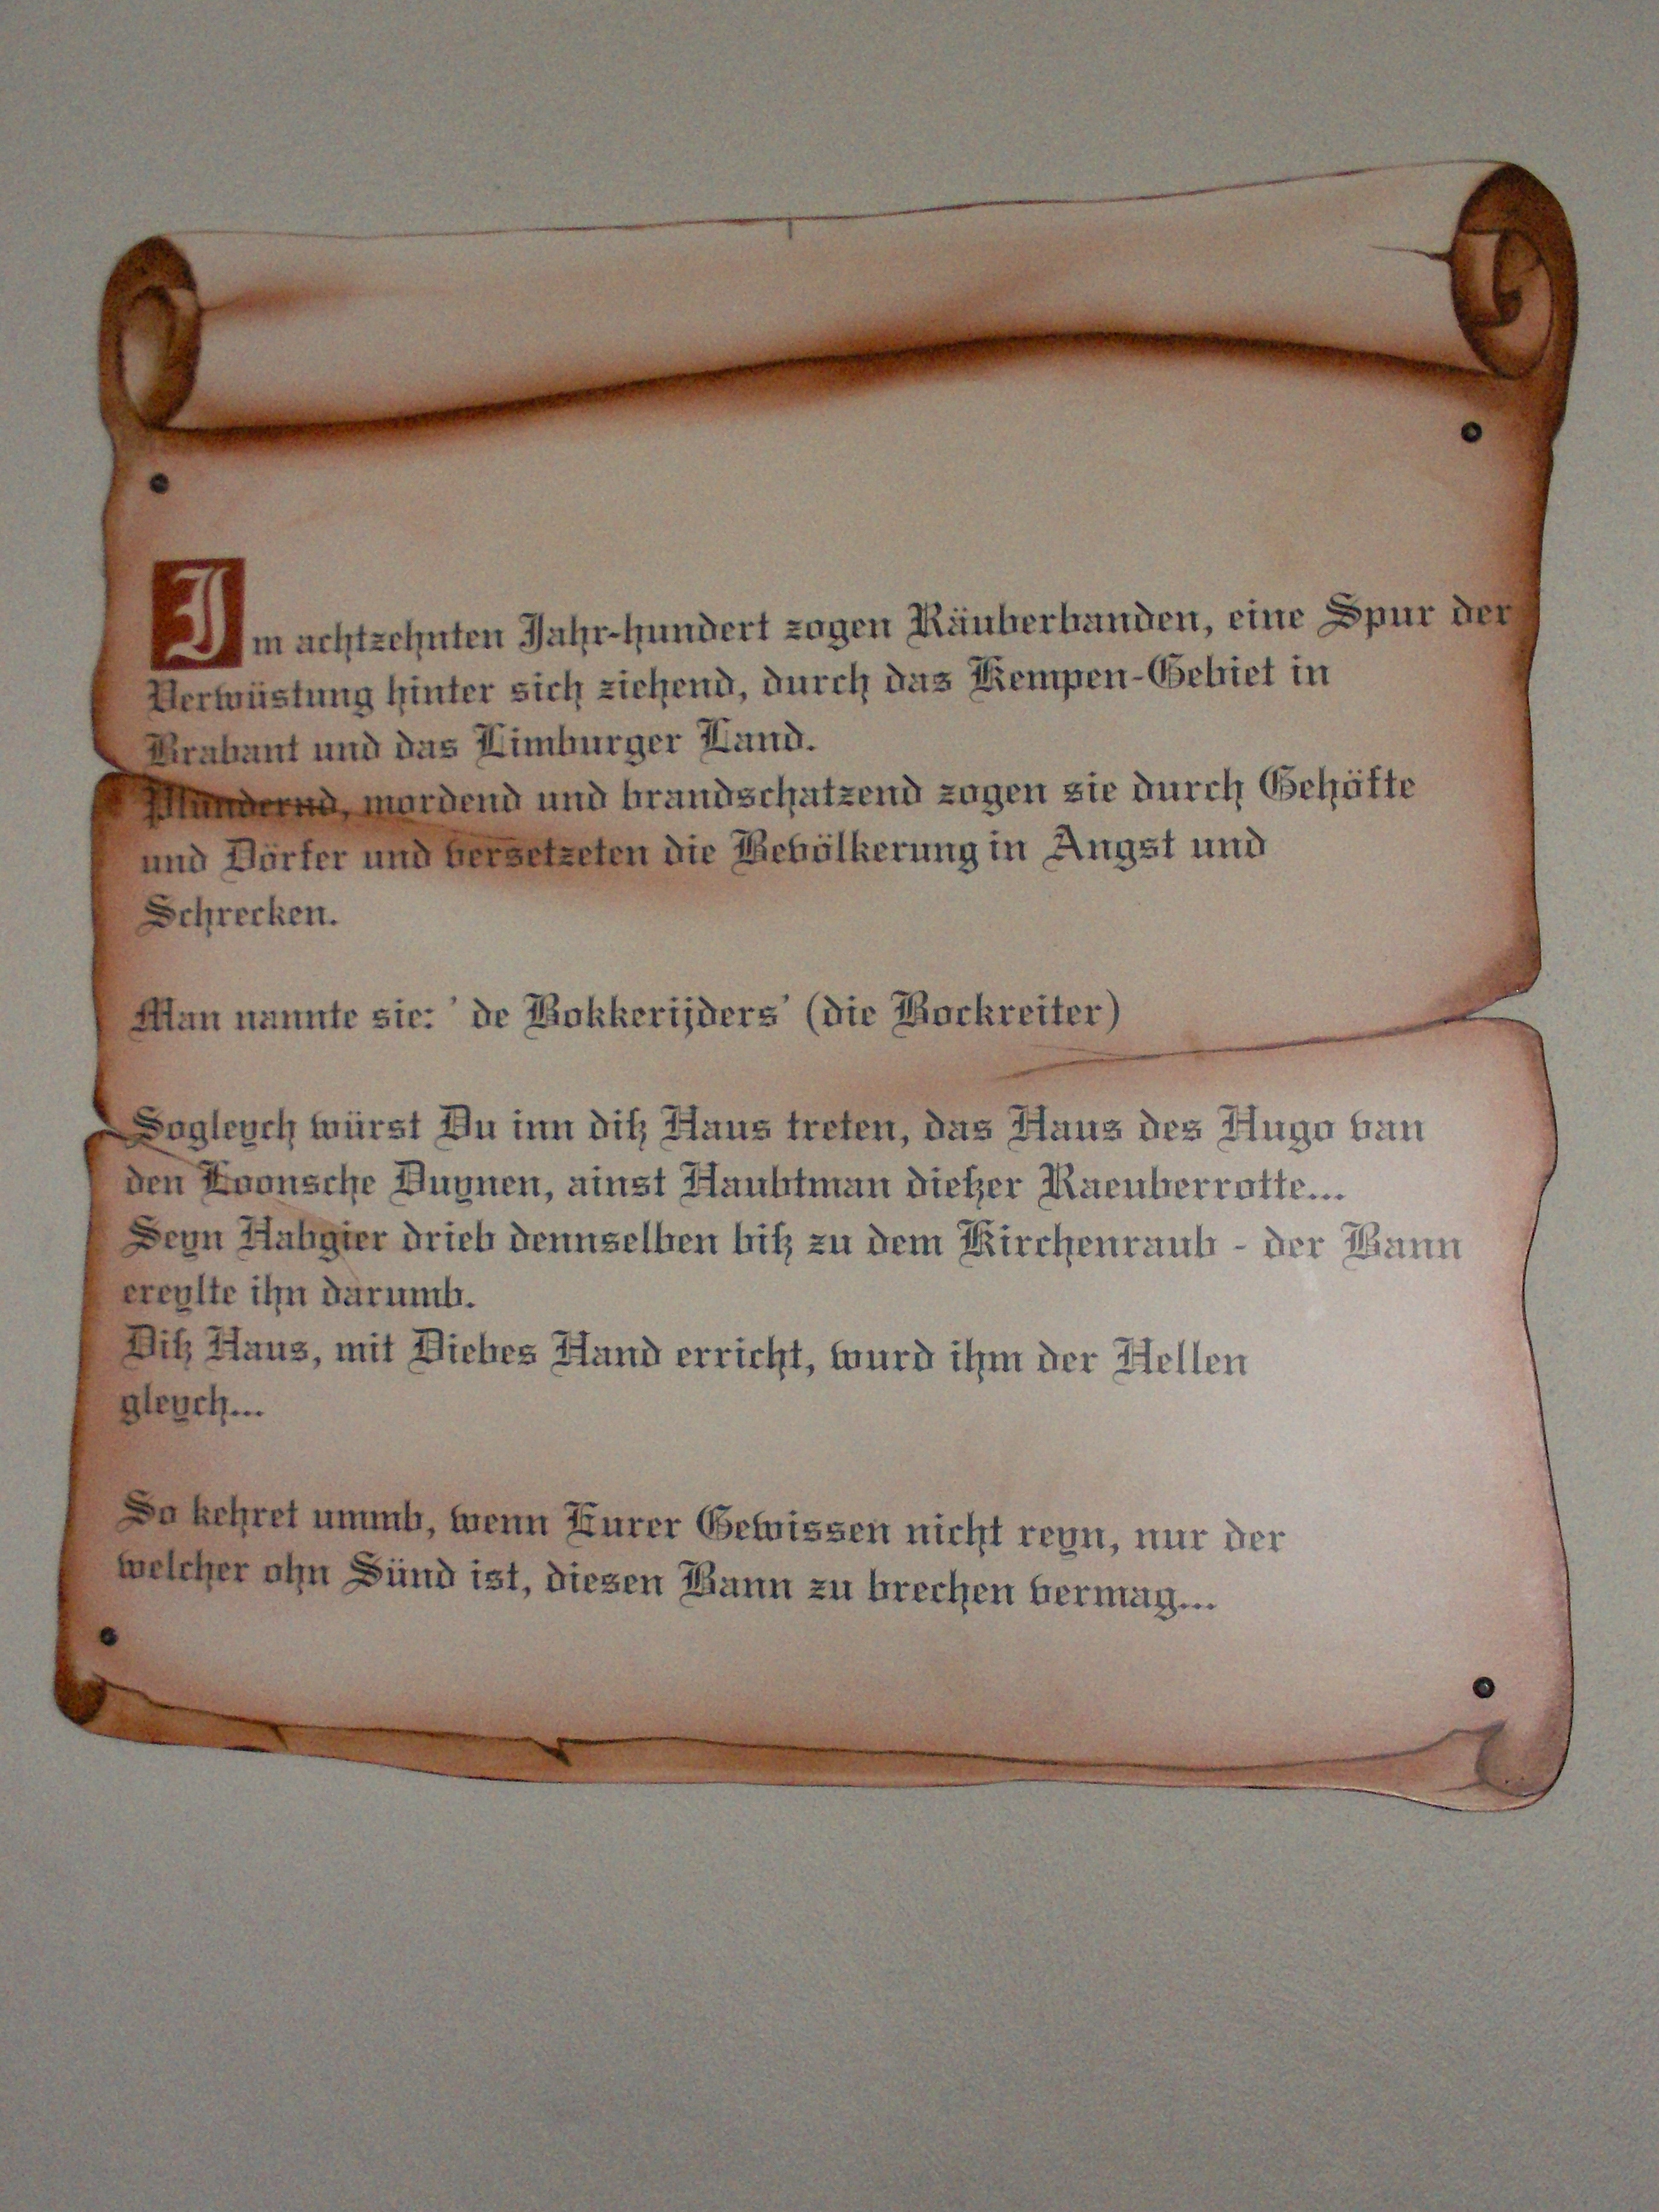 Im achtzehnten Jahr-hundert zogen Räuberbanden, eine Spur der
Verwüstung hinter sich ziehend, durch das Kempen-Gebiet in
Brabant und das Limburger Land.
Plündernd, mordend und brandschatzend zogen sie durch Gehöfte
und Dörfer und versetzeten die Bevölkerung in Angst und
Schrecken.
Man nannte sie: ' de Bokkerijders' (die Bockreiter)
Sogleych würst Du inn diß Haus treten, das Haus des Hugo van
den Loonsche Duynen, ainst Haubtman dießer Raeuberrotte...
Seyn Habgier drieb dennselben biß zu dem Kirchenraub - der Bann
ereylte ihn darumb.
Diß Haus, mit Diebes Hand erricht, wurd ihm der Hellen
gleych...
So kehret ummb, wenn Eurer Gewissen nicht reyn, nur der
welcher ohn Sünd ist, diesen Bann zu brechen vermag...